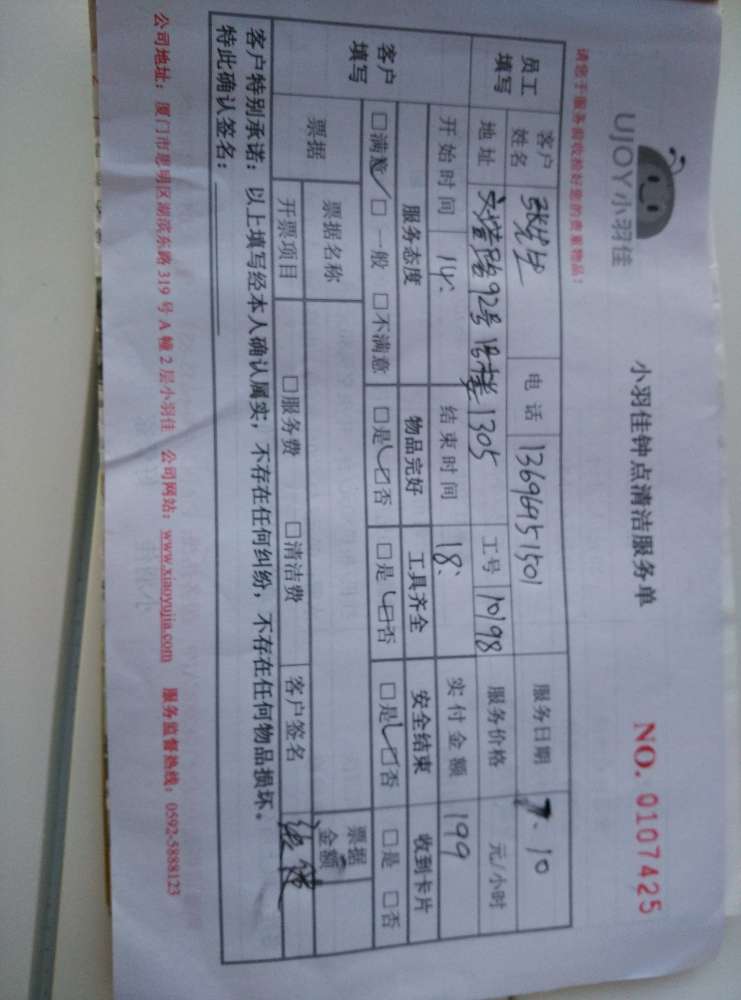 UJOY小羽佳
小羽佳钟点清洁服务单
NO. 0107425
请您于服务前收检好您的贵重物品!
员工填写 客户姓名 电话 13696951501 服务日期 7.10
地址 92号 1305 工号 10198 服务价格 元/小时
开始时间 14: 结束时间 18: 实付金额 199
客户填写 服务态度 物品完好 工具齐全 安全结束 收到卡片
□满意 □一般 □不满意 □是 □否 □是 □否 □是 □否 □是 □否
票据 票据名称 票据金额
开票项目 □服务费 □清洁费 客户签名
客户特别承诺:以上填写经本人确认属实,不存在任何纠纷,不存在任何物品损坏。
特此确认签名:
公司地址:厦门市思明区湖滨东路 319 号 A 幢 2 层小羽佳 公司网站:www.xiaoyujia.com 服务监督热线:0592-5888123